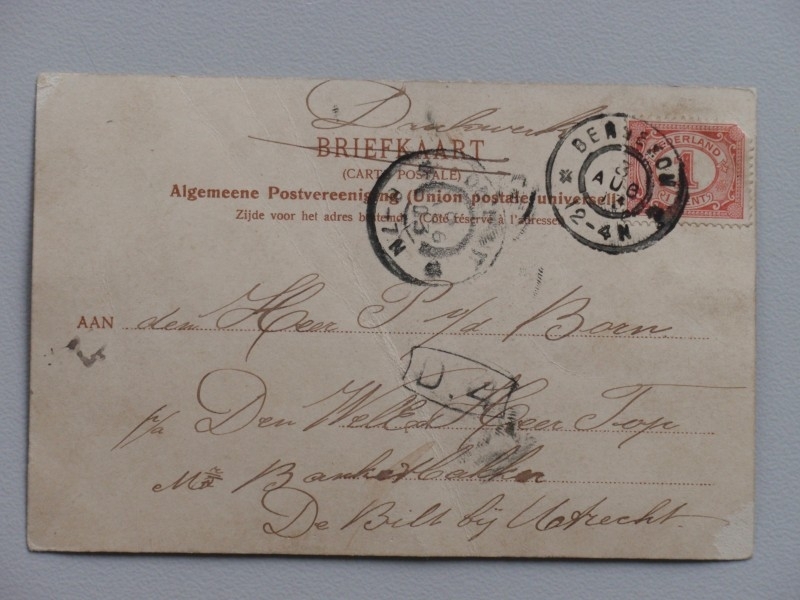 Drukwerk
BRIEFKAART
(CARTE POSTALE)
Algemeene Postvereeniging (Union postale universelle)
Zijde voor het adres bestemd. (Côté réservé à l'adresse)
NEDERLAND
1
CENT
BENNEKOM
AUG
2-4N
AAN den Heer P v/d Born
D. 4
p/a Den WelEd Heer Top
Mr Banketbakker
De Bilt bij Utrecht.